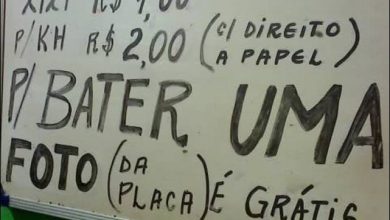 XIXI R$ 1,00
P/KH R$ 2,00 (C/ DIREITO A PAPEL)
P/ BATER UMA
FOTO (DA PLACA) É GRÁTIS